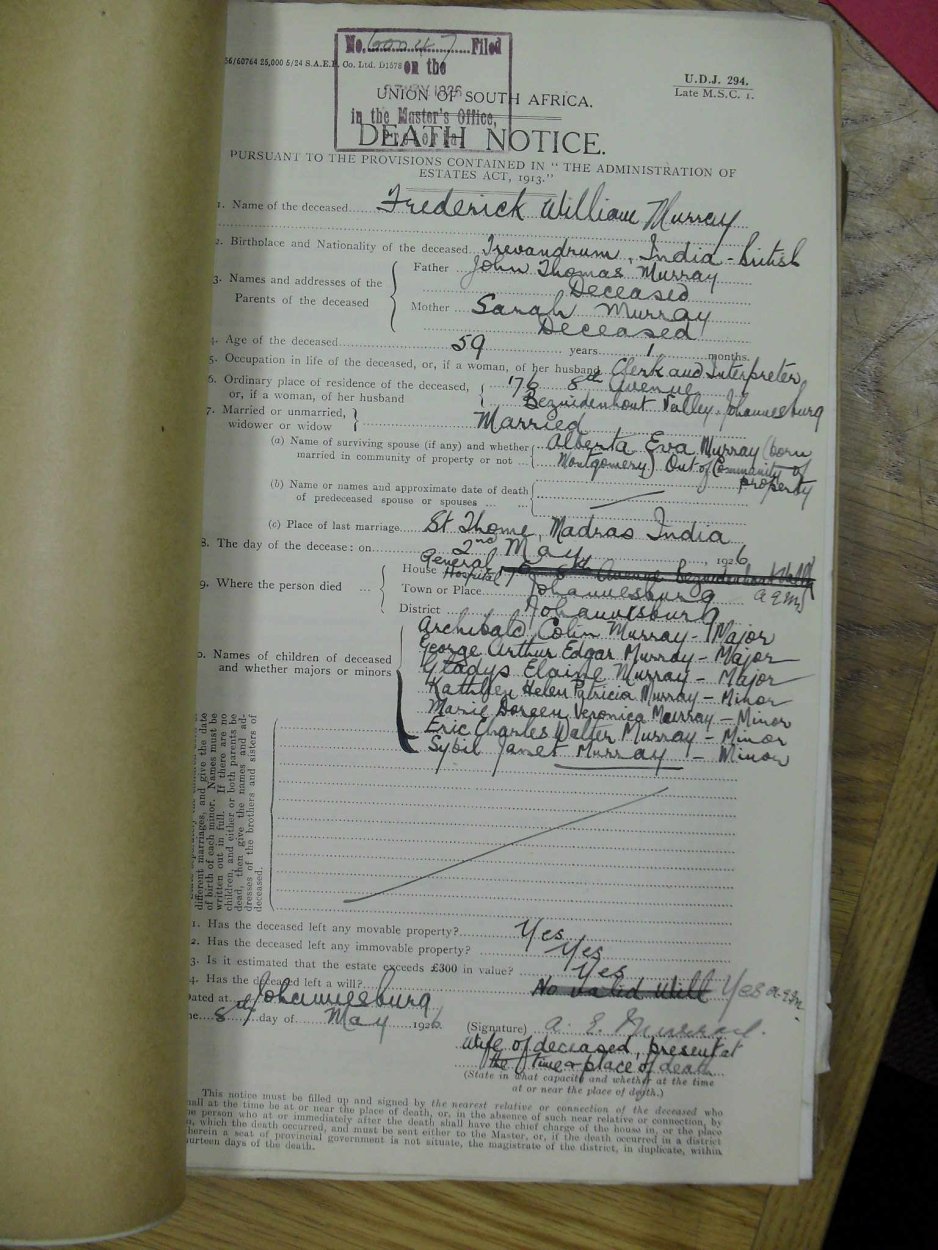 No. 60047 Filed
36/60764 25,000 5/24 S.A.E.P. Co. Ltd. D1578
on the
U.D.J. 294.
Late M.S.C. 1.
1926
UNION OF SOUTH AFRICA.
in the Master's Office,
Pretoria
DEATH NOTICE.
PURSUANT TO THE PROVISIONS CONTAINED IN "THE ADMINISTRATION OF
ESTATES ACT, 1913."
1. Name of the deceased Frederick William Murray
2. Birthplace and Nationality of the deceased Trevandrum, India - British
3. Names and addresses of the Parents of the deceased
Father John Thomas Murray
Deceased
Mother Sarah Murray
Deceased
4. Age of the deceased 59 years 1 months.
5. Occupation in life of the deceased, or, if a woman, of her husband Clerk and Interpreter
6. Ordinary place of residence of the deceased, 176 8th Avenue
or, if a woman, of her husband Bezuidenhout Valley, Johannesburg
7. Married or unmarried, widower or widow Married
(a) Name of surviving spouse (if any) and whether Alberta Eva Murray (born
married in community of property or not Montgomery) Out of Community of
property
(b) Name or names and approximate date of death
of predeceased spouse or spouses
(c) Place of last marriage St Thome, Madras India
8. The day of the decease: on 2nd May, 1926
9. Where the person died
House General Hospital
Town or Place Johannesburg a.E.M.
District Johannesburg
0. Names of children of deceased
and whether majors or minors
Archibald Colin Murray - Major
George Arthur Edgar Murray - Major
Gladys Elaine Murray - Major
Kathleen Helen Patricia Murray - Minor
Marie Doreen Veronica Murray - Minor
Eric Charles Walter Murray - Minor
Sybil Janet Murray - Minor
different marriages, and give the date
of birth of each minor. Names must be
written out in full. If there are no
children, and either or both parents be
dead, then give the names and ad-
dresses of the brothers and sisters of
deceased.
1. Has the deceased left any movable property? Yes
2. Has the deceased left any immovable property? Yes
3. Is it estimated that the estate exceeds £300 in value? Yes
4. Has the deceased left a will? No valid Will Yes a.E.M.
Dated at Johannesburg
he 8th day of May 1926
(Signature) A. E. Murray.
Wife of deceased, present at
the time & place of death
(State in what capacity and whether at the time
at or near the place of death.)
This notice must be filled up and signed by the nearest relative or connection of the deceased who
hall at the time be at or near the place of death, or, in the absence of such near relative or connection, by
he person who at or immediately after the death shall have the chief charge of the house in, or the place
n, which the death occurred, and must be sent either to the Master, or, if the death occurred in a district
herein a seat of provincial government is not situate, the magistrate of the district, in duplicate, within
urteen days of the death.